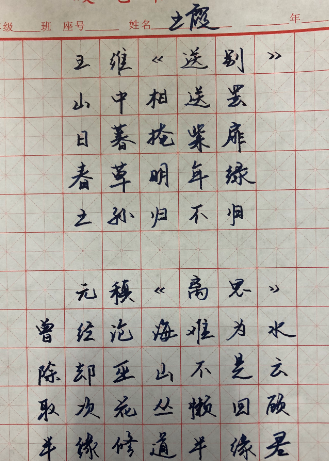 级 班 座号 姓名 王霞 年
王维《送别》
山中相送罢
日暮掩柴扉
春草明年绿
王孙归不归
元稹《离思》
曾经沧海难为水
除却巫山不是云
取次花丛懒回顾
半缘修道半缘君